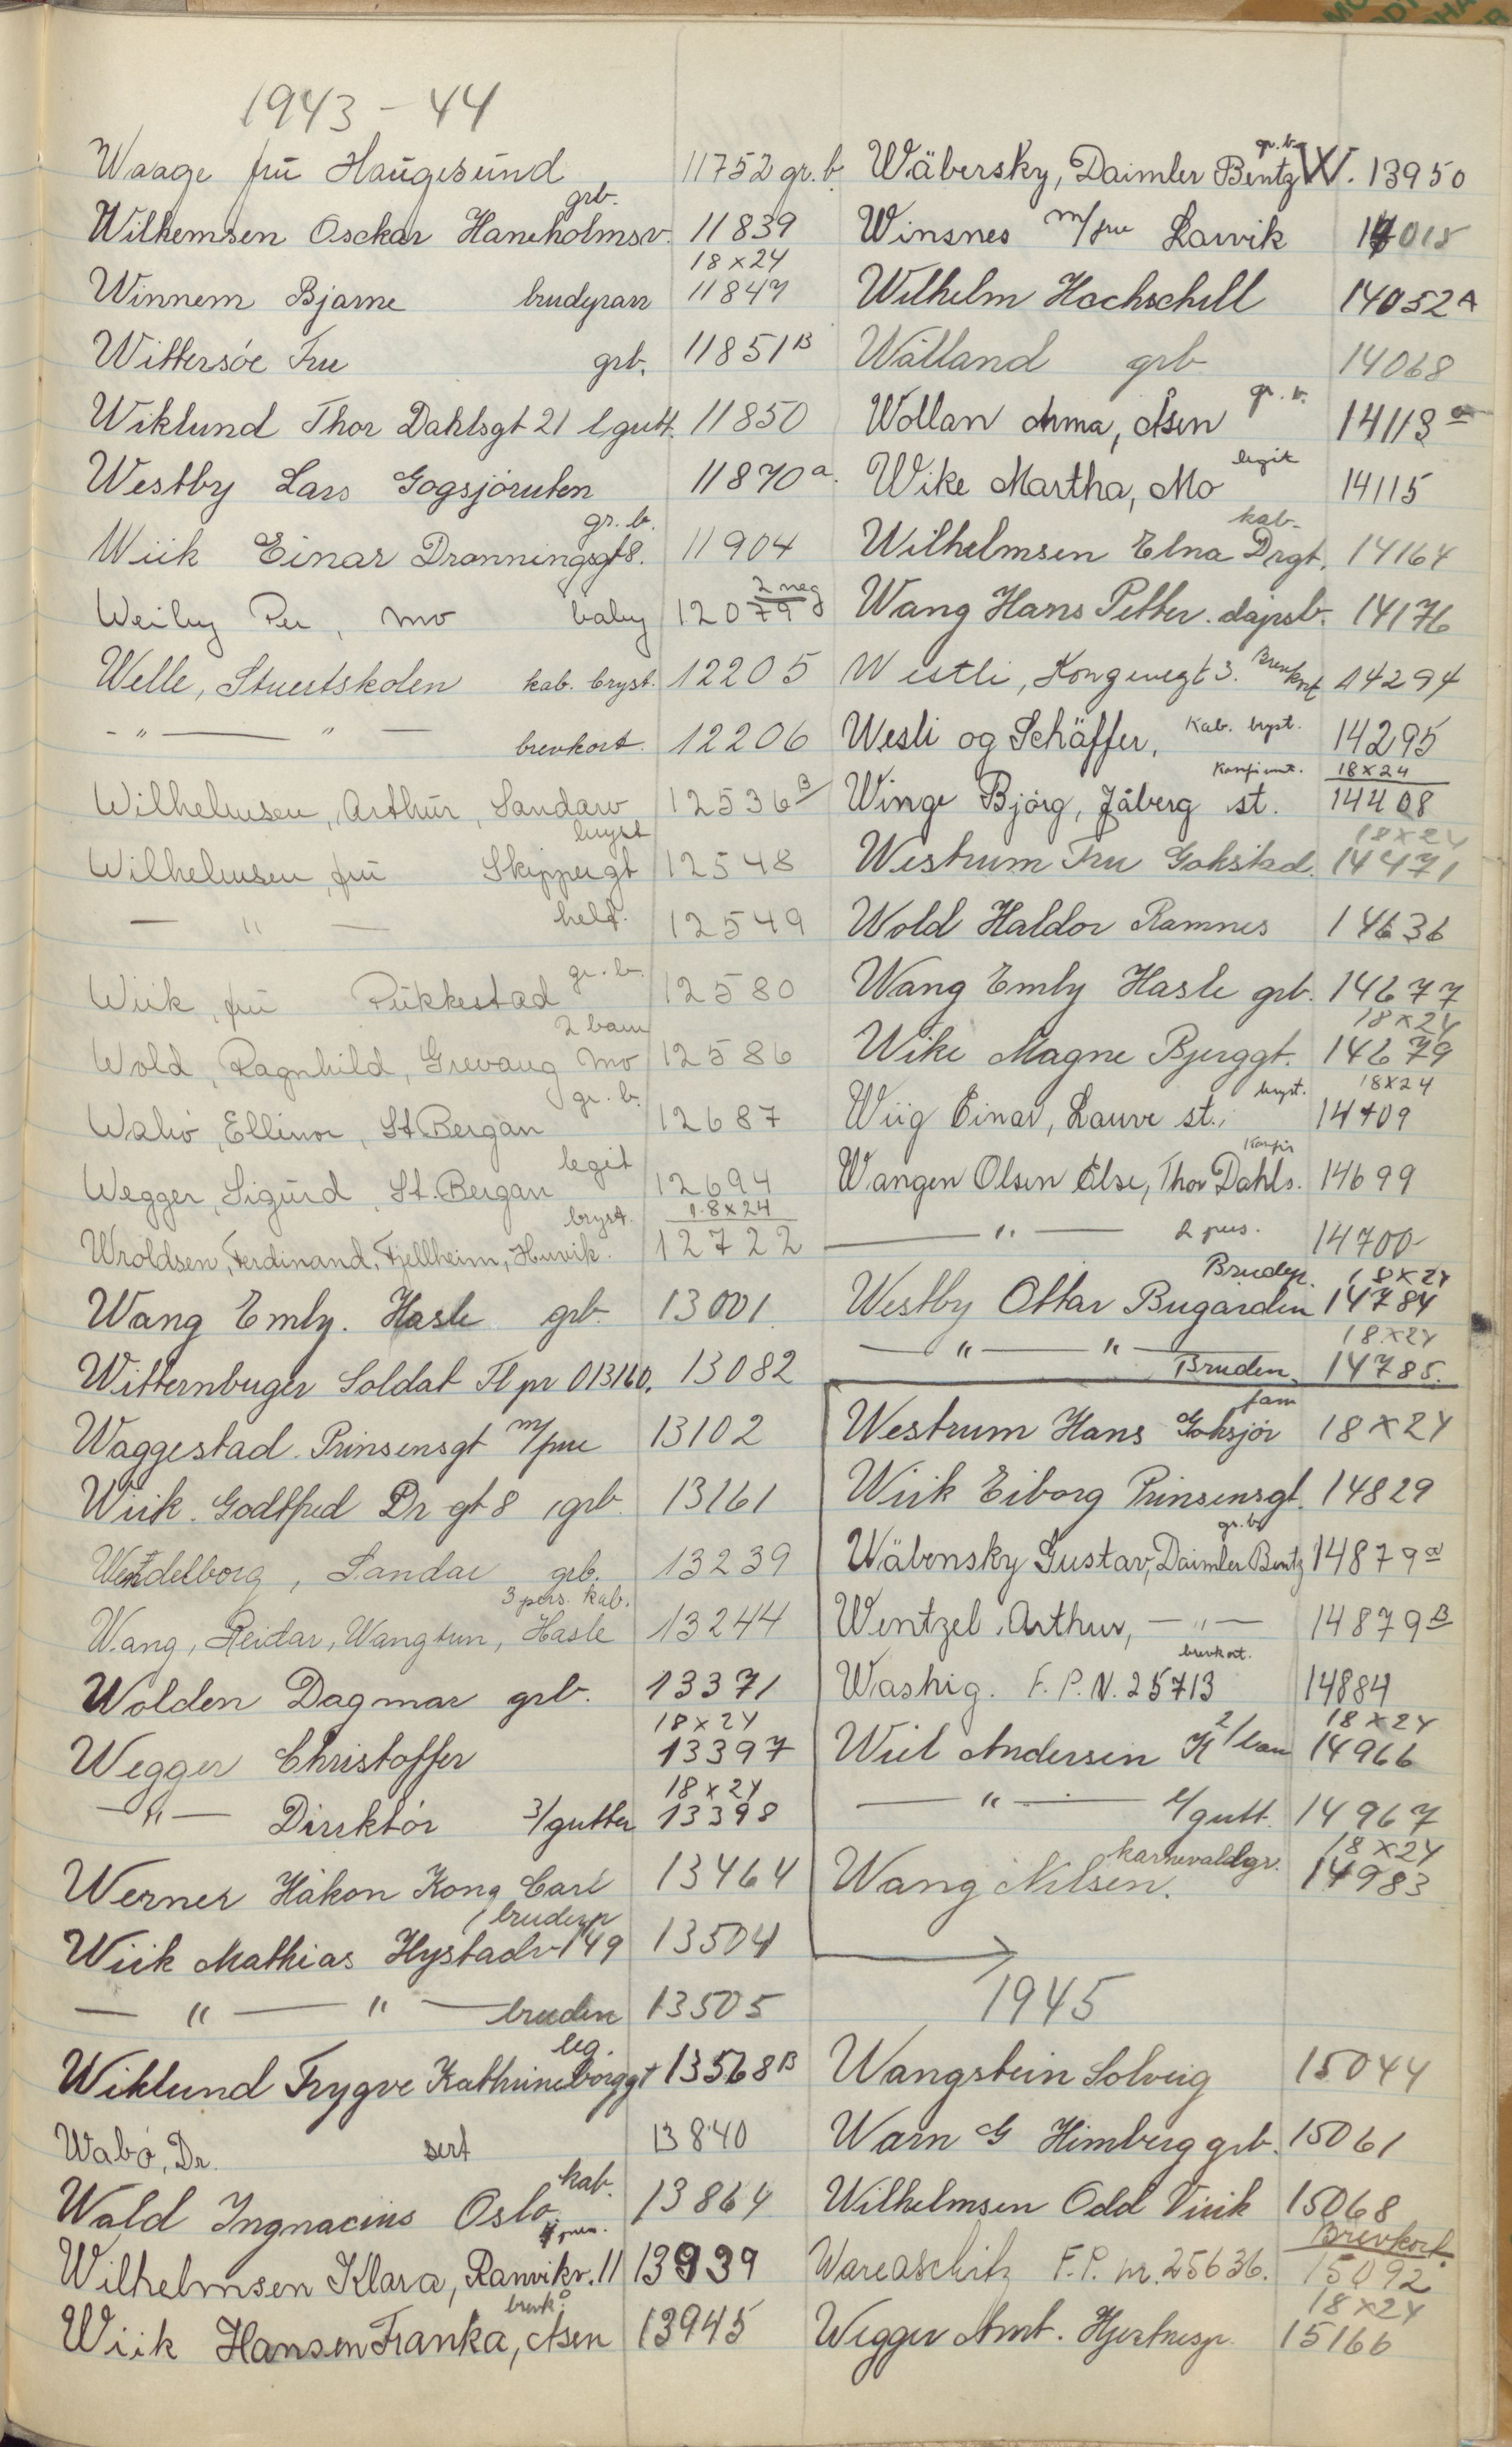 1943 - 44
Waage frü Haügesünd 11752 gr.b.
grb.
Wilhemsen Osckar Haneholmsv. 11839
18x24
Winnem Bjarne brudeparr 11847
Wittersöe Fru grb. 11851B
Wiklund Thor Dahlsgt 21 l gutt. 11850
Westby Lars Gogsjöruten 11870a.
gr. b.
Wiik Einar Dronningsgt 8. 11904
2 neg
Weiby Per, Mo baby 12079
Welle, Stuertskolen kab. bryst. 12205
- " — " — brevkort. 12206
Wilhelmsen, Arthür, Sandarv 12536B
bryst
Wilhelmsen, frü Skippergt 12548
— " — helf. 12549
gr. b.
Wiik, frü Pükkestad 12580
2 barn
Wold, Ragnhild, Grevaug Mo 12586
gr. b.
Wabö, Ellinor, St. Bergan 12687
legit
Wegger, Sigürd, St. Bergan 12694
bryst. 18x24
Wroldsen, Ferdinand, Fjellheim, Huvik. 12722
Wang Emly. Hasle grb. 13001
Witternbuger Soldat Fl pr 013160. 13082
Waggestad Prinsensgt m/frue 13102
Wiik. Godtfred Dr gt 8 grb 13161
Wendelborg, Sandar grb. 13239
3 pers. kab.
Wang, Reidar, Wangtun, Hasle 13244
Wolden Dagmar grb. 13371
18x24
Wegger Christoffer 13397
18x24
— " — Direktör 3/gutter 13398
Werner Håkon Kong Carl 13464
brudep
Wiik Mathias Hystadv 149 13504
— " — " — bruden 13505
leg.
Wiklund Trygve Kathrineborggt 13568B
Wabö, Dr. sert 13840
kab.
Wald Ingnacius Oslo. 13864
4 pers.
Wilhelmsen Klara, Ranvikv. 11 13939
brevk.
Wiik Hansen Franka, Åsen 13945
gr. b. W.
Wäbersky, Daimler Bentz 13950
Winsnes m/frue Larvik 14018
Wilhelm Hochschill 14052A
Wålland grb 14068
gr. b.
Wollan Anna, Åsen 14113a
legit
Wike Martha, Mo 14115
kab.
Wilhelmsen Elna Drgt. 14164
Wang Hans Petter. dåpsb. 14176
Westli, Kongensgt 3. Brevkort 14294
Wesli og Schäffer, Kab. bryst. 14295
Konfirmt. 18x24
Winge Björg, Jåberg st. 14408
18x24
Westrum Fru Gokstad 14471
Wold Haldor Ramnes 14636
Wang Emly Hasle grb. 14677
18x24
Wike Magne Bjerggt. 14679
bryst. 18x24
Wiig Einar, Lauve st., 14409
Konfir
Wangen Olsen Else, Thor Dahls. 14699
— " — 2 pers. 14700
Brudep. 18x24
Westby Ottar Bugården 14784
18x24
— " — " — Bruden. 14785.
fam
Westrum Hans Goksjör 18x24
Wiik Eiborg Prinsensgt. 14829
gr. b.
Wäbensky Gustav, Daimler Bentz 14879a
Wentzel, Arthur, — " — 14879B
brevkort.
Washig. F. P. N. 25713 14884
18x24
Wiel Andersen K 2/barn 14966
— " — 1/gutt. 14967
karnevaldgr. 18x24
Wang Nilsen. 14983
1945
Wangstein Solveig 15044
Warn G Himberg grb. 15061
Wilhelmsen Odd Virik 15068
Brevkort.
Wareaschitz F.P. nr. 25636. 15092
18x24
Wegger Amt. Hjertnesp. 15166